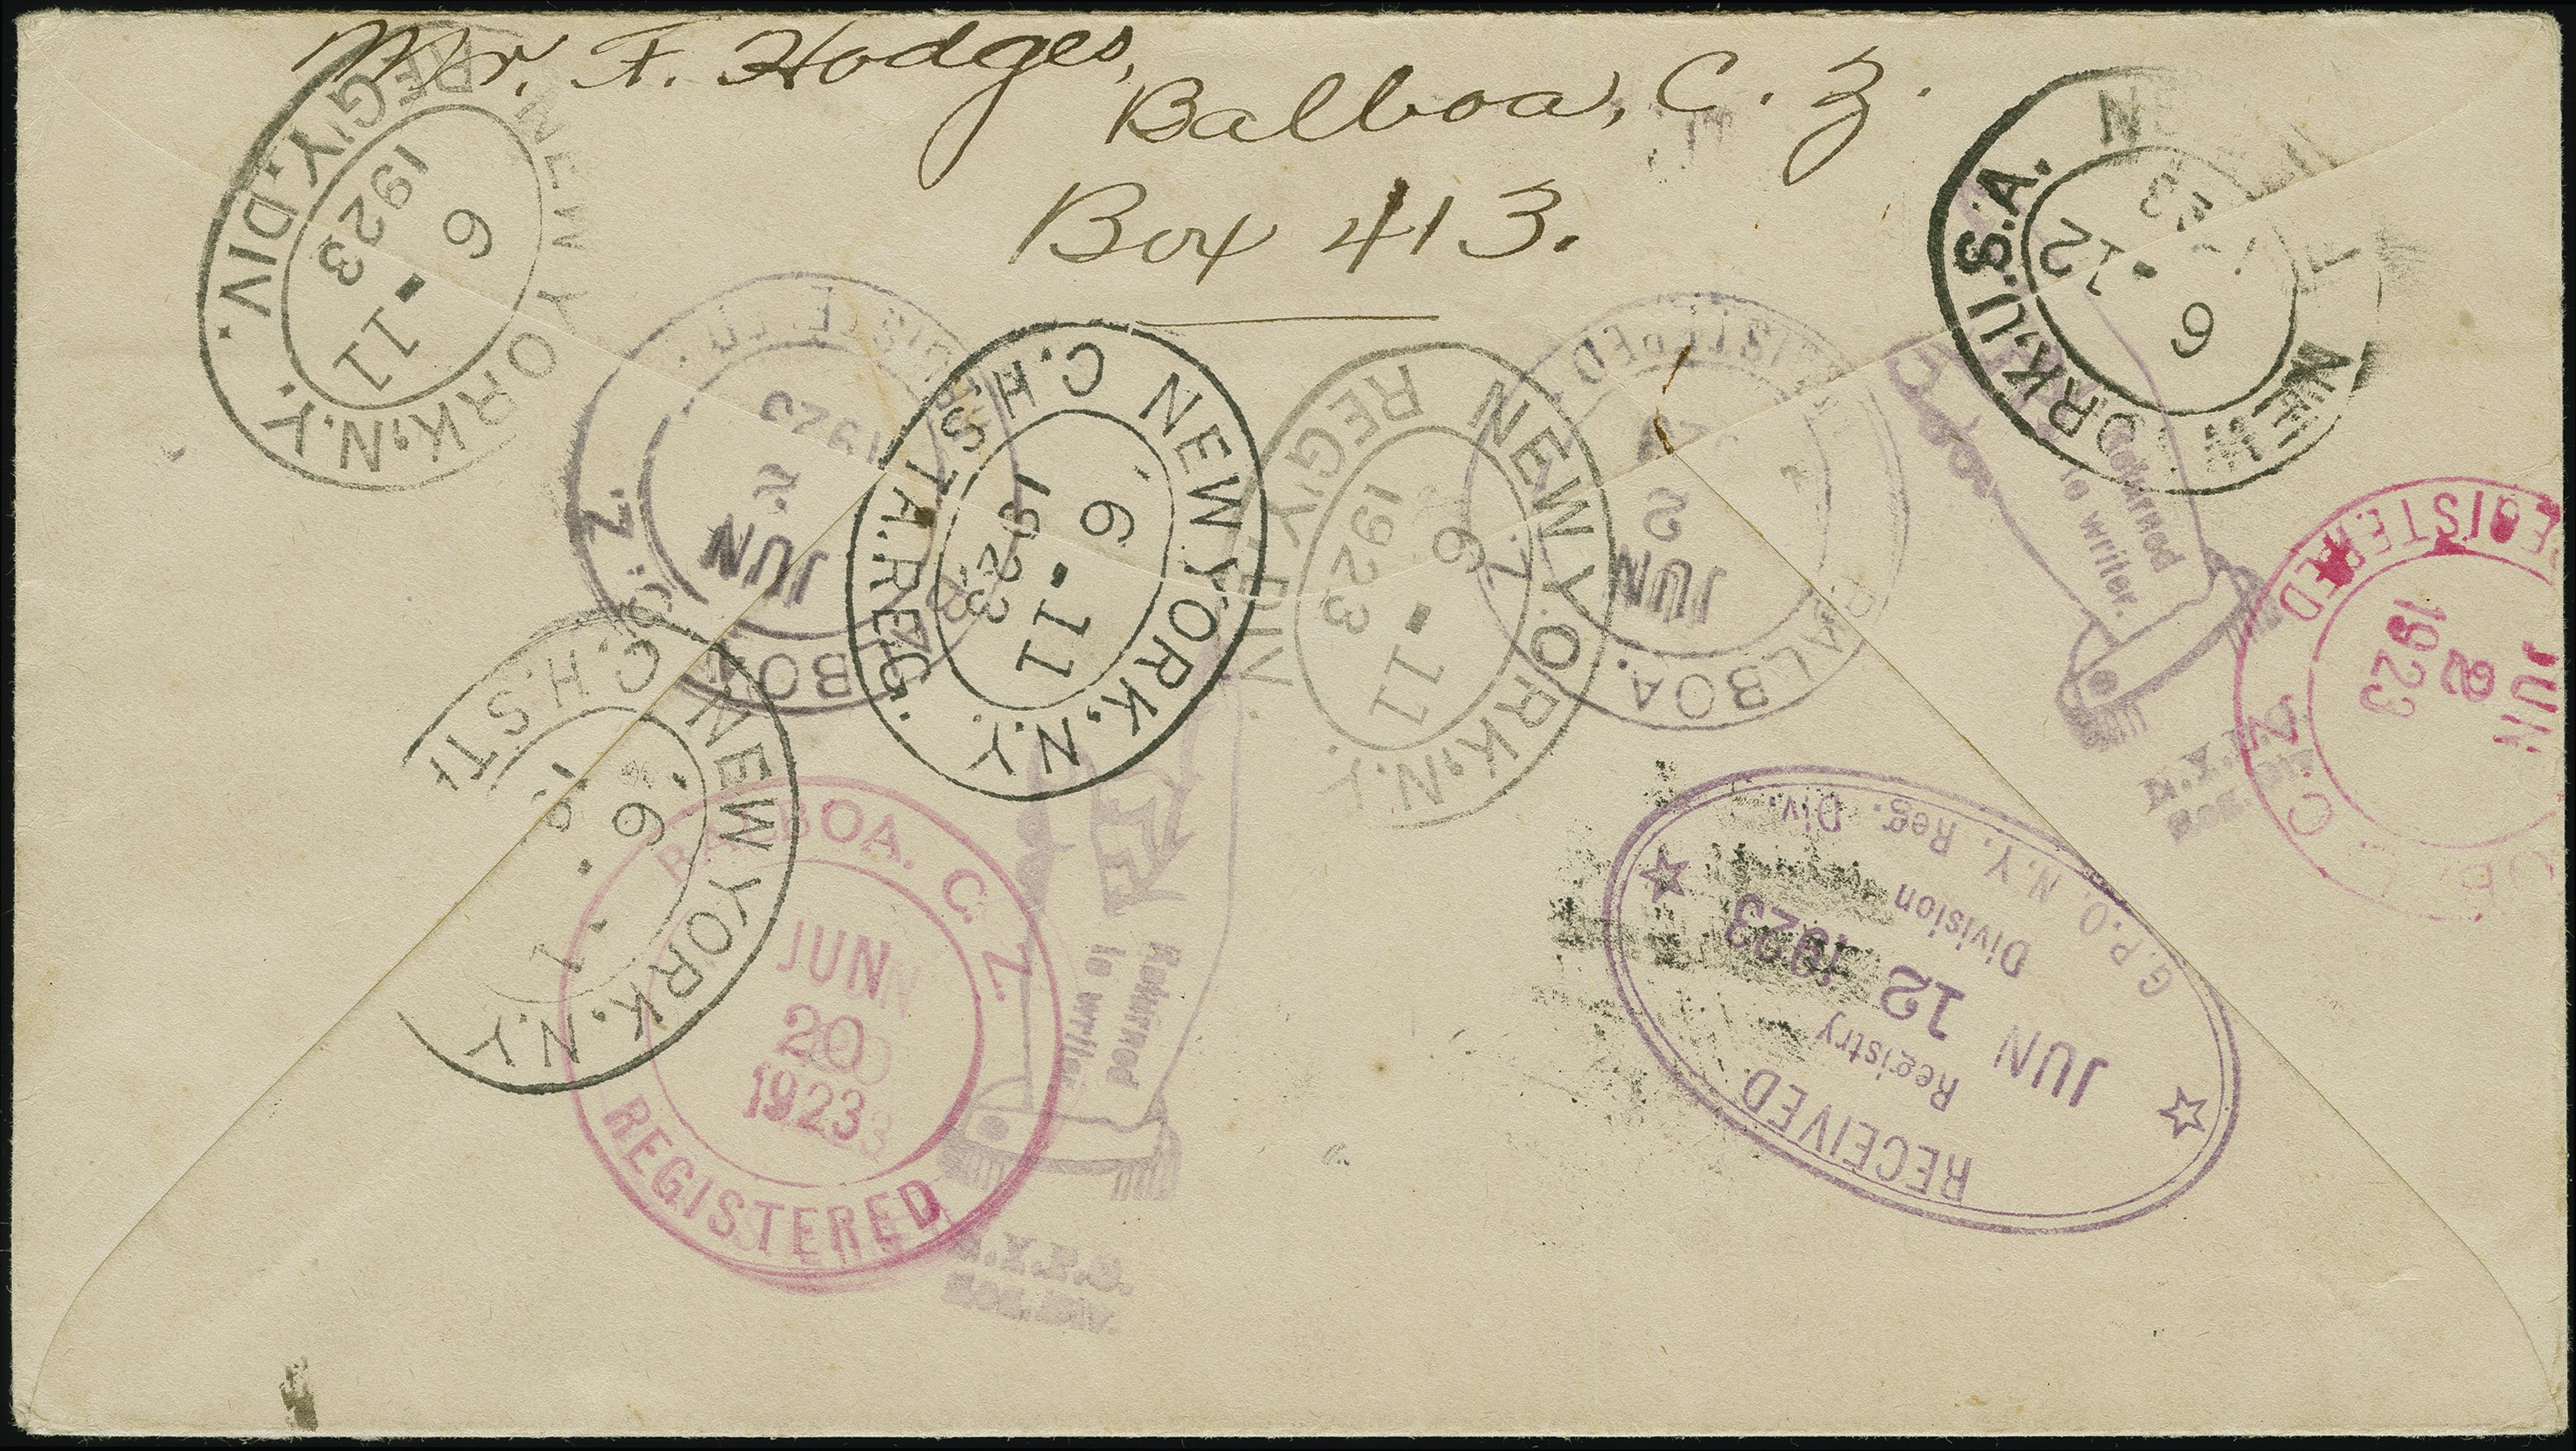 Mr. F. Hodges,
Balboa, C. Z.
Box 413.
NEW YORK, N.Y. REG'Y. DIV.
6 - 11
1923
NEW YORK, U.S.A.
6 - 12
REGISTERED
JUN
2
1923
BALBOA. C. Z.
NEW YORK, N.Y. C.H. STA. REG.
6 - 11
1923
NEW YORK, N.Y. REG'Y. DIV.
6 - 11
1923
REGISTERED
JUN
2
BALBOA. C. Z.
Returned
to writer.
REGISTERED
JUN
2
1923
C. Z.
NEW YORK, N.Y. C.H. STA
6
BALBOA. C. Z.
JUN
20
1923
REGISTERED
Returned
to writer
N.Y.P.O.
RECEIVED
Registry
JUN 12 1923
Division
G.P.O. N.Y. Reg. Div.